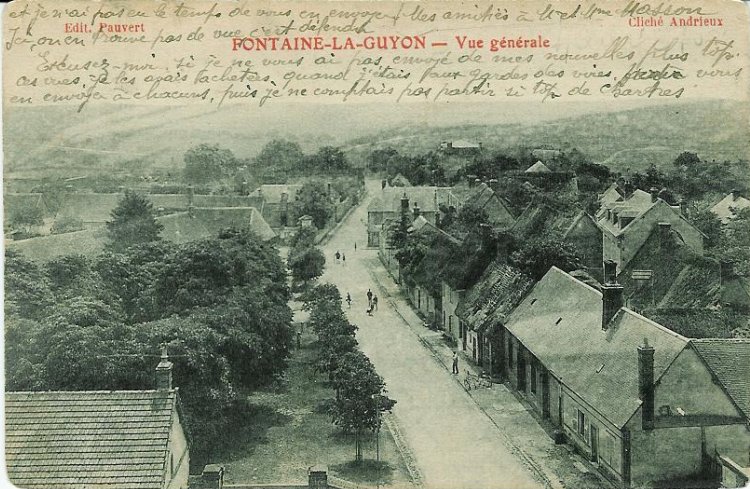 et je n'ai pas eu le temps de vous en envoyer. Mes amitiés à M et Mme Masson
Edit. Pauvert
Cliché Andrieux
Ici, on en trouve pas de vue c'est défendu
FONTAINE-LA-GUYON — Vue générale
Excusez-moi, si je ne vous ai pas envoyé de mes nouvelles plus top.
ces vues, je les avais achetées, quand j'étais pour garder des voies, vous
en envoyer à chacuns, puis je ne comptais pas partir si top de Chartres